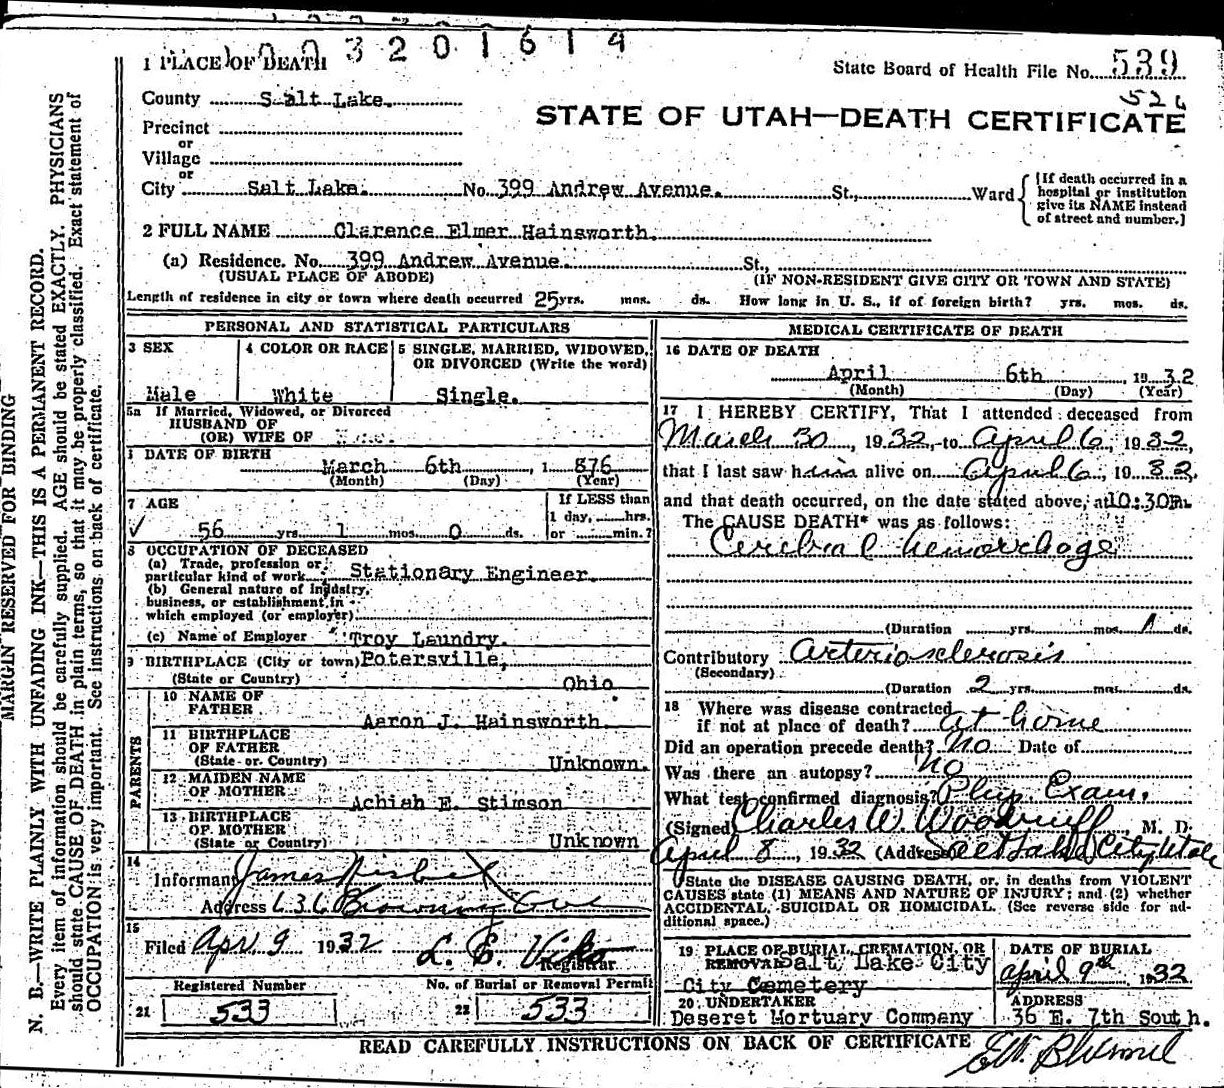 1 0 0 3 2 0 1 6 1 4
1 PLACE OF DEATH
State Board of Health File No. 539
526
County Salt Lake.
STATE OF UTAH—DEATH CERTIFICATE
Precinct
or
Village
or
City Salt Lake. No. 399 Andrew Avenue. St., Ward
{If death occurred in a hospital or institution give its NAME instead of street and number.}
2 FULL NAME Clarence Elmer Hainsworth.
(a) Residence. No. 399 Andrew Avenue. St.,
(USUAL PLACE OF ABODE) (IF NON-RESIDENT GIVE CITY OR TOWN AND STATE)
Length of residence in city or town where death occurred 25 yrs. mos. ds. How long in U. S., if of foreign birth? yrs. mos. ds.
PERSONAL AND STATISTICAL PARTICULARS
3 SEX
Male
4 COLOR OR RACE
White
5 SINGLE, MARRIED, WIDOWED, OR DIVORCED (Write the word)
Single.
5a If Married, Widowed, or Divorced
HUSBAND OF
(OR) WIFE OF
DATE OF BIRTH
March 6th, 1 876
(Month) (Day) (Year)
7 AGE
56 yrs. 1 mos. 0 ds.
If LESS than
1 day, hrs.
or min.?
8 OCCUPATION OF DECEASED
(a) Trade, profession or
particular kind of work Stationary Engineer.
(b) General nature of industry,
business, or establishment in
which employed (or employer)
(c) Name of Employer Troy Laundry.
9 BIRTHPLACE (City or town) Potersville,
(State or Country) Ohio.
PARENTS
10 NAME OF
FATHER
Aaron J. Hainsworth.
11 BIRTHPLACE
OF FATHER
(State or Country) Unknown.
12 MAIDEN NAME
OF MOTHER
Achiah E. Stimson
13 BIRTHPLACE
OF MOTHER
(State or Country) Unknown
14
Informant James Nisbet
Address 636 Browning Ave
15
Filed Apr 9 1932
Registrar.
Registered Number
21 533
No. of Burial or Removal Permit
22 533
MEDICAL CERTIFICATE OF DEATH
16 DATE OF DEATH
April 6th, 1932
(Month) (Day) (Year)
17 I HEREBY CERTIFY, That I attended deceased from
March 30, 1932, to April 6, 1932,
that I last saw him alive on April 6, 1932,
and that death occurred, on the date stated above, at 10:30 P.m.
The CAUSE DEATH* was as follows:
Cerebral hemorrhage
(Duration yrs. mos. 1 ds.
Contributory Arteriosclerosis
(Secondary)
(Duration 2 yrs. mos. ds.
18 Where was disease contracted
if not at place of death? at home
Did an operation precede death? no Date of
Was there an autopsy? no
What test confirmed diagnosis? Phys. Exam.
(Signed Charles W. Woodruff, M. D.
April 8, 1932 (Address Salt Lake City Utah
State the DISEASE CAUSING DEATH, or, in deaths from VIOLENT
CAUSES state (1) MEANS AND NATURE OF INJURY; and (2) whether
ACCIDENTAL, SUICIDAL OR HOMICIDAL. (See reverse side for ad-
ditional space.)
19 PLACE OF BURIAL, CREMATION, OR
REMOVAL Salt Lake City
City Cemetery
DATE OF BURIAL
April 9th, 1932
20 UNDERTAKER
Deseret Mortuary Company
ADDRESS
36 E. 7th South.
READ CAREFULLY INSTRUCTIONS ON BACK OF CERTIFICATE
MARGIN RESERVED FOR BINDING
N. B.—WRITE PLAINLY WITH UNFADING INK—THIS IS A PERMANENT RECORD.
Every item of information should be carefully supplied. AGE should be stated EXACTLY. PHYSICIANS
should state CAUSE OF DEATH in plain terms, so that it may be properly classified. Exact statement of
OCCUPATION is very important. See instructions on back of certificate.